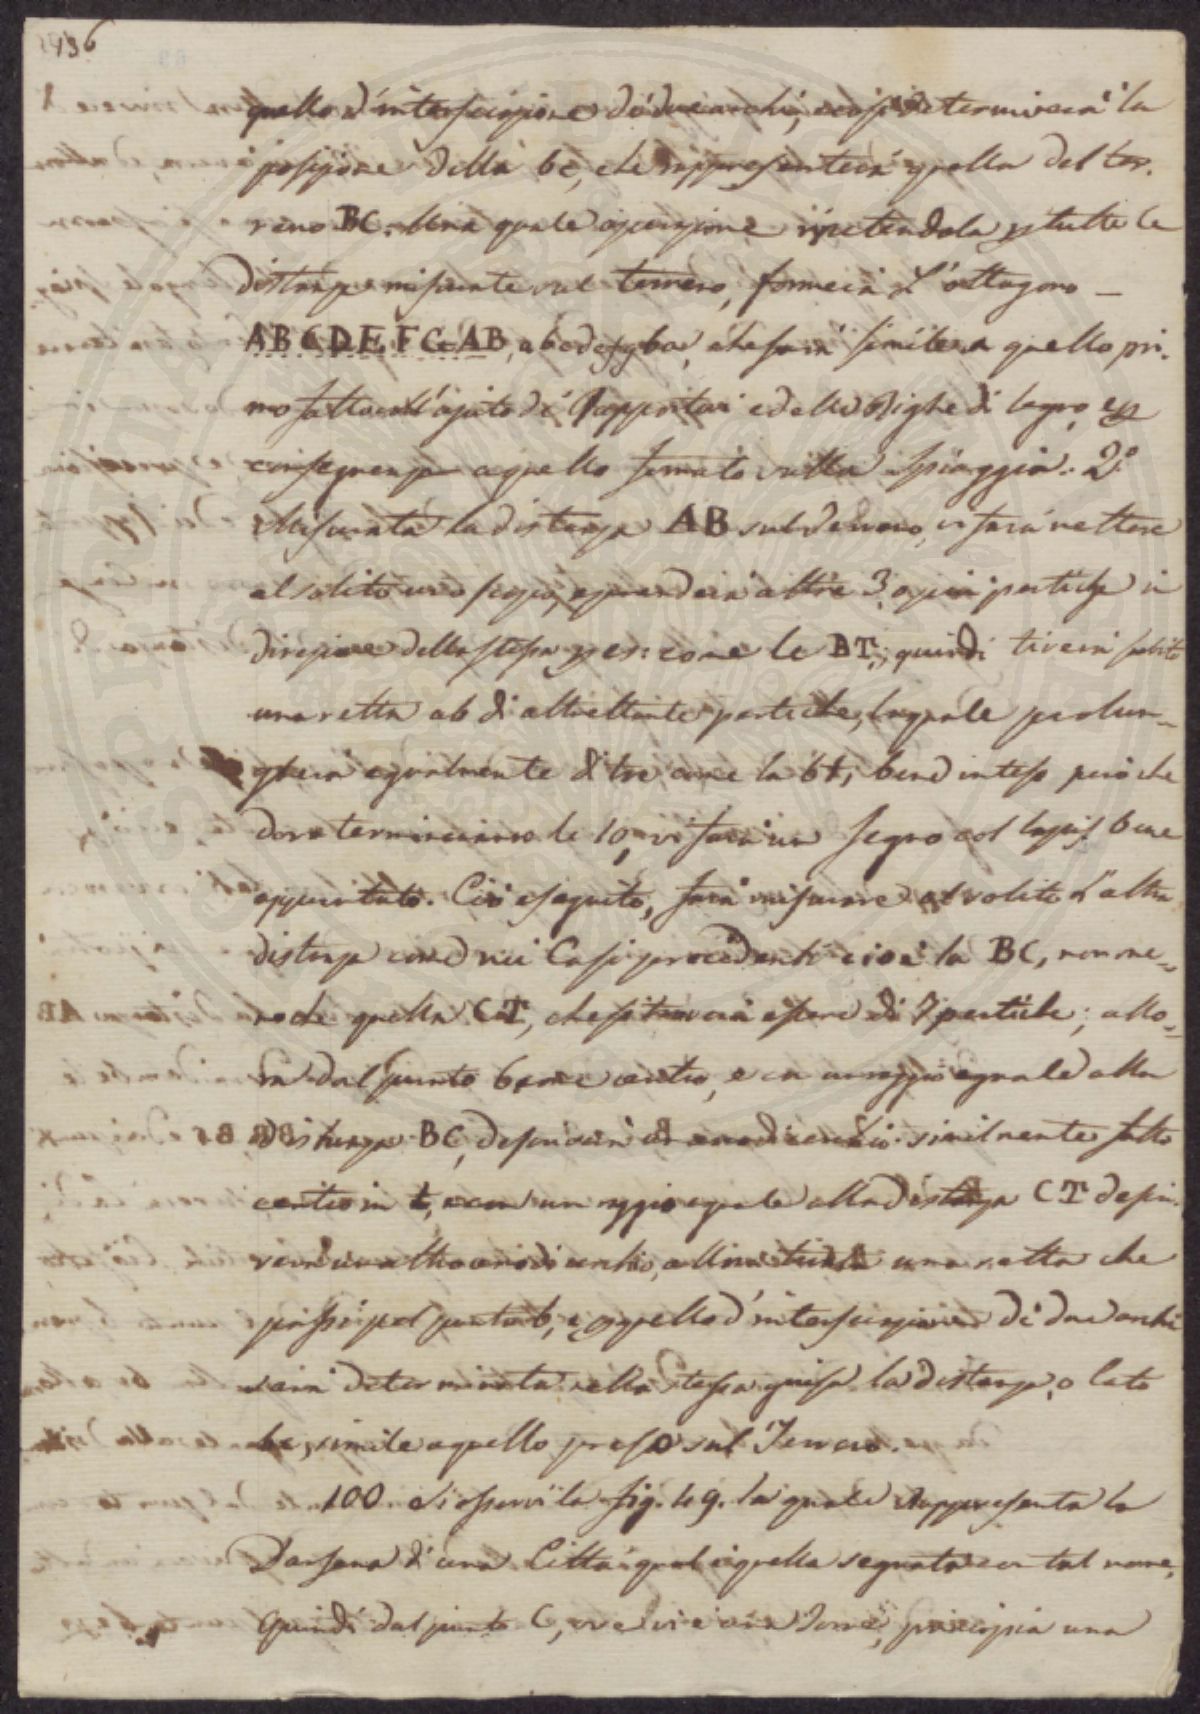 136
quello d'intersecizione di due archi, e così determinerà la
posizione della bc, che rappresenterà quella del ter-
reno BC. Una quale operazione ripetendola p tutte le
distanze misurate sul terreno, formerà l'ottagono —
ABCDEFGAB, abcdefgba, che sarà simile a quello pri-
mo fatto coll'ajuto di Rapportari e delle Righe di legno, e p
conseguenza a quello formato sulla Spiaggia. 2.º
Misurata la distanza AB sul terreno, vi farà mettere
al solito uno scopo, e prenderà altre 3 o più pertiche in
direzione della stessa per es: come le BT; quindi tirerà subito
una retta ab di altrettante pertiche, la quale prolun-
gherà egualmente di tre come la bt; bene inteso però che
dove termineranno le 10, vi farà un segno col lapis bene
appuntato. Ciò eseguito, farà misurare al solito l'altra
distanza come nei Casi precedenti cioè la BC, non me-
no che quella CT, che si troverà essere di 7 pertiche; allo-
ra dal punto b come centro, e con un raggio eguale alla
distanza BC, descriverà un arco di cerchio. similmente fatto
centro in t, e con un raggio eguale alla distanza CT descri-
verà un altro arco di cerchio, allora tirata una retta che
passi pel punto b, e p quello d'intersecizione di due archi
sarà determinata nella stessa guisa la distanza, o lato
bc, simile a quello preso sul Terreno.
100. Si osservi la fig. 49. la quale Rappresenta la
Darsena d'una Città qual è quella segnata con tal nome,
Quindi dal punto C, ove vi è una Torre, principia una